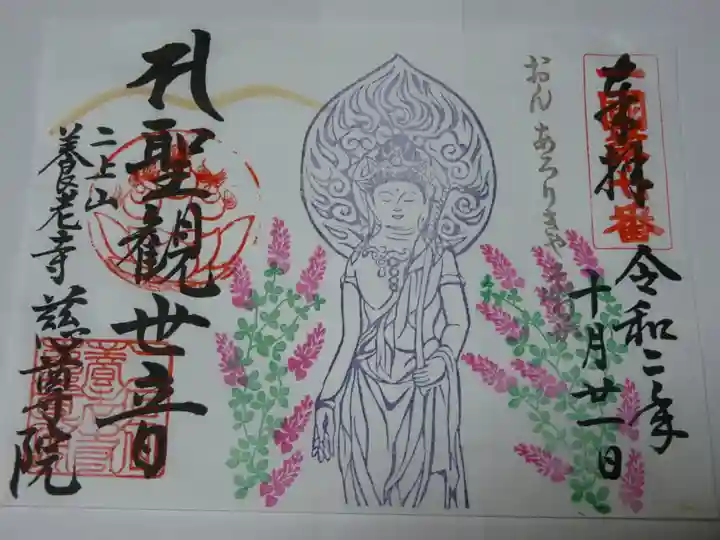 奉拝
令和二年
十月廿一日
おん あろりきゃ そわか
聖観世音
二上山
養老寺 慈尊院